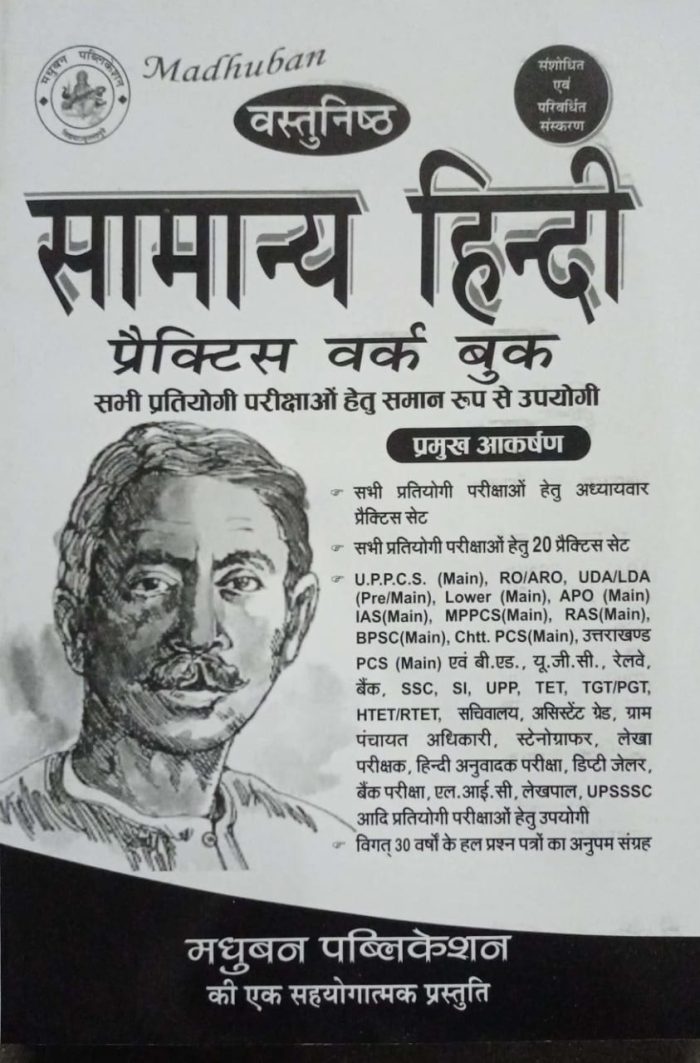 मधुबन पब्लिकेशन
Madhuban
वस्तुनिष्ठ
संशोधित
एवं
परिवर्धित
संस्करण
सामान्य हिन्दी
प्रैक्टिस वर्क बुक
सभी प्रतियोगी परीक्षाओं हेतु समान रुप से उपयोगी
प्रमुख आकर्षण
☞ सभी प्रतियोगी परीक्षाओं हेतु अध्यायवार
प्रैक्टिस सेट
☞ सभी प्रतियोगी परीक्षाओं हेतु 20 प्रैक्टिस सेट
☞ U.P.P.C.S. (Main), RO/ARO, UDA/LDA
(Pre/Main), Lower (Main), APO (Main)
IAS(Main), MPPCS(Main), RAS(Main),
BPSC(Main), Chtt. PCS(Main), उत्तराखण्ड
PCS (Main) एवं बी.एड., यू.जी.सी., रेलवे,
बैंक, SSC, SI, UPP, TET, TGT/PGT,
HTET/RTET, सचिवालय, असिस्टेंट ग्रेड, ग्राम
पंचायत अधिकारी, स्टेनोग्राफर, लेखा
परीक्षक, हिन्दी अनुवादक परीक्षा, डिप्टी जेलर,
बैंक परीक्षा, एल.आई.सी, लेखपाल, UPSSSC
आदि प्रतियोगी परीक्षाओं हेतु उपयोगी
☞ विगत् 30 वर्षों के हल प्रश्न पत्रों का अनुपम संग्रह
मधुबन पब्लिकेशन
की एक सहयोगात्मक प्रस्तुति